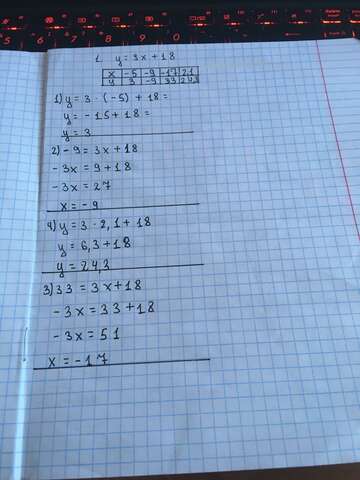 5 6 7 8 9 0
1. y = 3x + 18
x -5 -9 -17 2,1
y 3 -9 33 24,3
1) y = 3 · (-5) + 18 =
y = -15 + 18 =
y = 3
2) -9 = 3x + 18
-3x = 9 + 18
-3x = 27
x = -9
4) y = 3 · 2,1 + 18
y = 6,3 + 18
y = 24,3
3) 33 = 3x + 18
-3x = 33 + 18
-3x = 51
x = -17